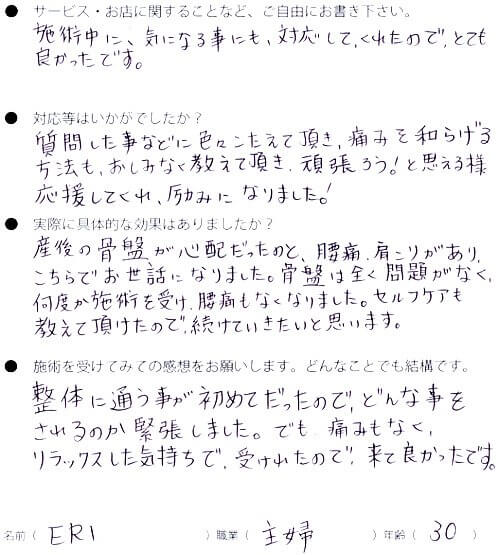 ● サービス・お店に関することなど、ご自由にお書き下さい。
施術中に、気になる事にも、対応して、くれたので、とても
良かったです。
● 対応等はいかがでしたか？
質問した事などに色々こたえて頂き、痛みを和らげる
方法も、おしみなく教えて頂き、頑張ろう！と思える様
応援してくれ、励みになりました！
● 実際に具体的な効果はありましたか？
産後の骨盤が心配だったのと、腰痛、肩こりがあり、
こちらでお世話になりました。骨盤は全く問題がなく、
何度か施術を受け、腰痛もなくなりました。セルフケアも
教えて頂けたので、続けていきたいと思います。
● 施術を受けてみての感想をお願いします。どんなことでも結構です。
整体に通う事が初めてだったので、どんな事を
されるのか緊張しました。でも、痛みもなく、
リラックスした気持ちで、受けれたので、来て良かったです。
名前（ ERI ）職業（ 主婦 ）年齢（ 30 ）